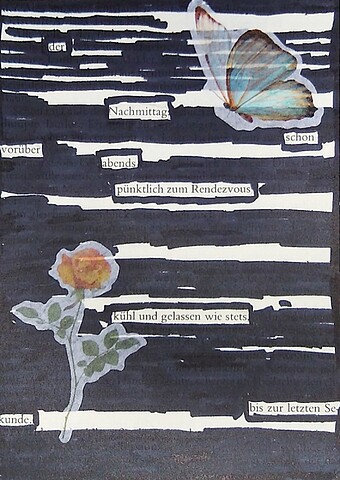 der
Nachmittag
schon
vorüber
abends
pünktlich zum Rendezvous
kühl und gelassen wie stets,
bis zur letzten Se-
kunde.